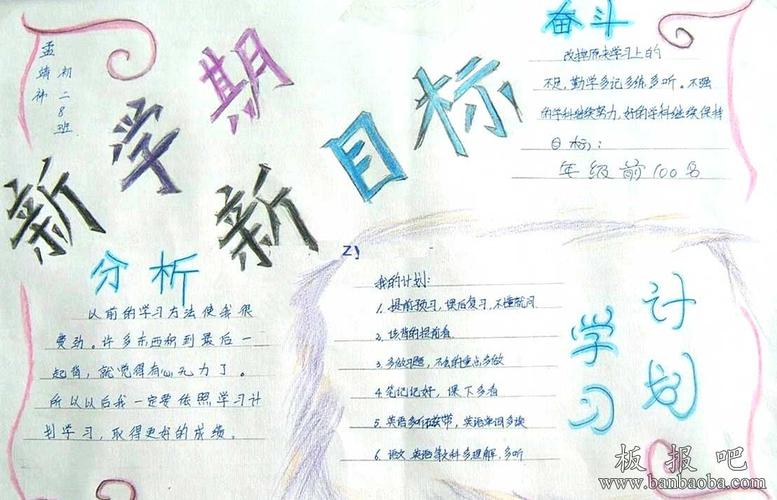 初二8班
孟靖
新学期
新目标
奋斗
改掉原来学习上的
不足,勤学多记多练多听。不强
的学科继续努力,好的学科继续保持
目标:
年级前100名
分析
以前的学习方法使我很
费劲。许多东西积到最后一
起背,就觉得有心无力了。
所以以后我一定要依照学习计
划学习,取得更好的成绩。
我的计划:
1. 提前预习,课后复习,不懂就问
2. 该背的提前背
3. 多做习题,不会的重点多做
4. 笔记记好,课下多看
5. 英语多听磁带,英语单词多读
6. 语文 英语等文科多理解,多听
学习
计划
板报吧
www.banbaoba.com